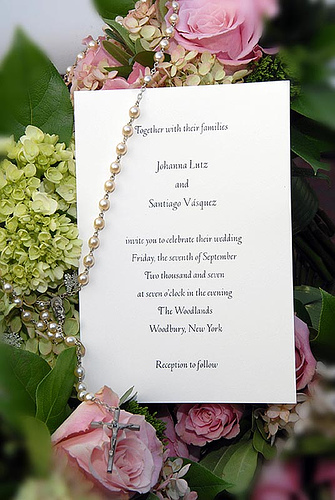 Together with their families
Johanna Lutz
and
Santiago Vásquez
invite you to celebrate their wedding
Friday, the seventh of September
Two thousand and seven
at seven o'clock in the evening
The Woodlands
Woodbury, New York
Reception to follow